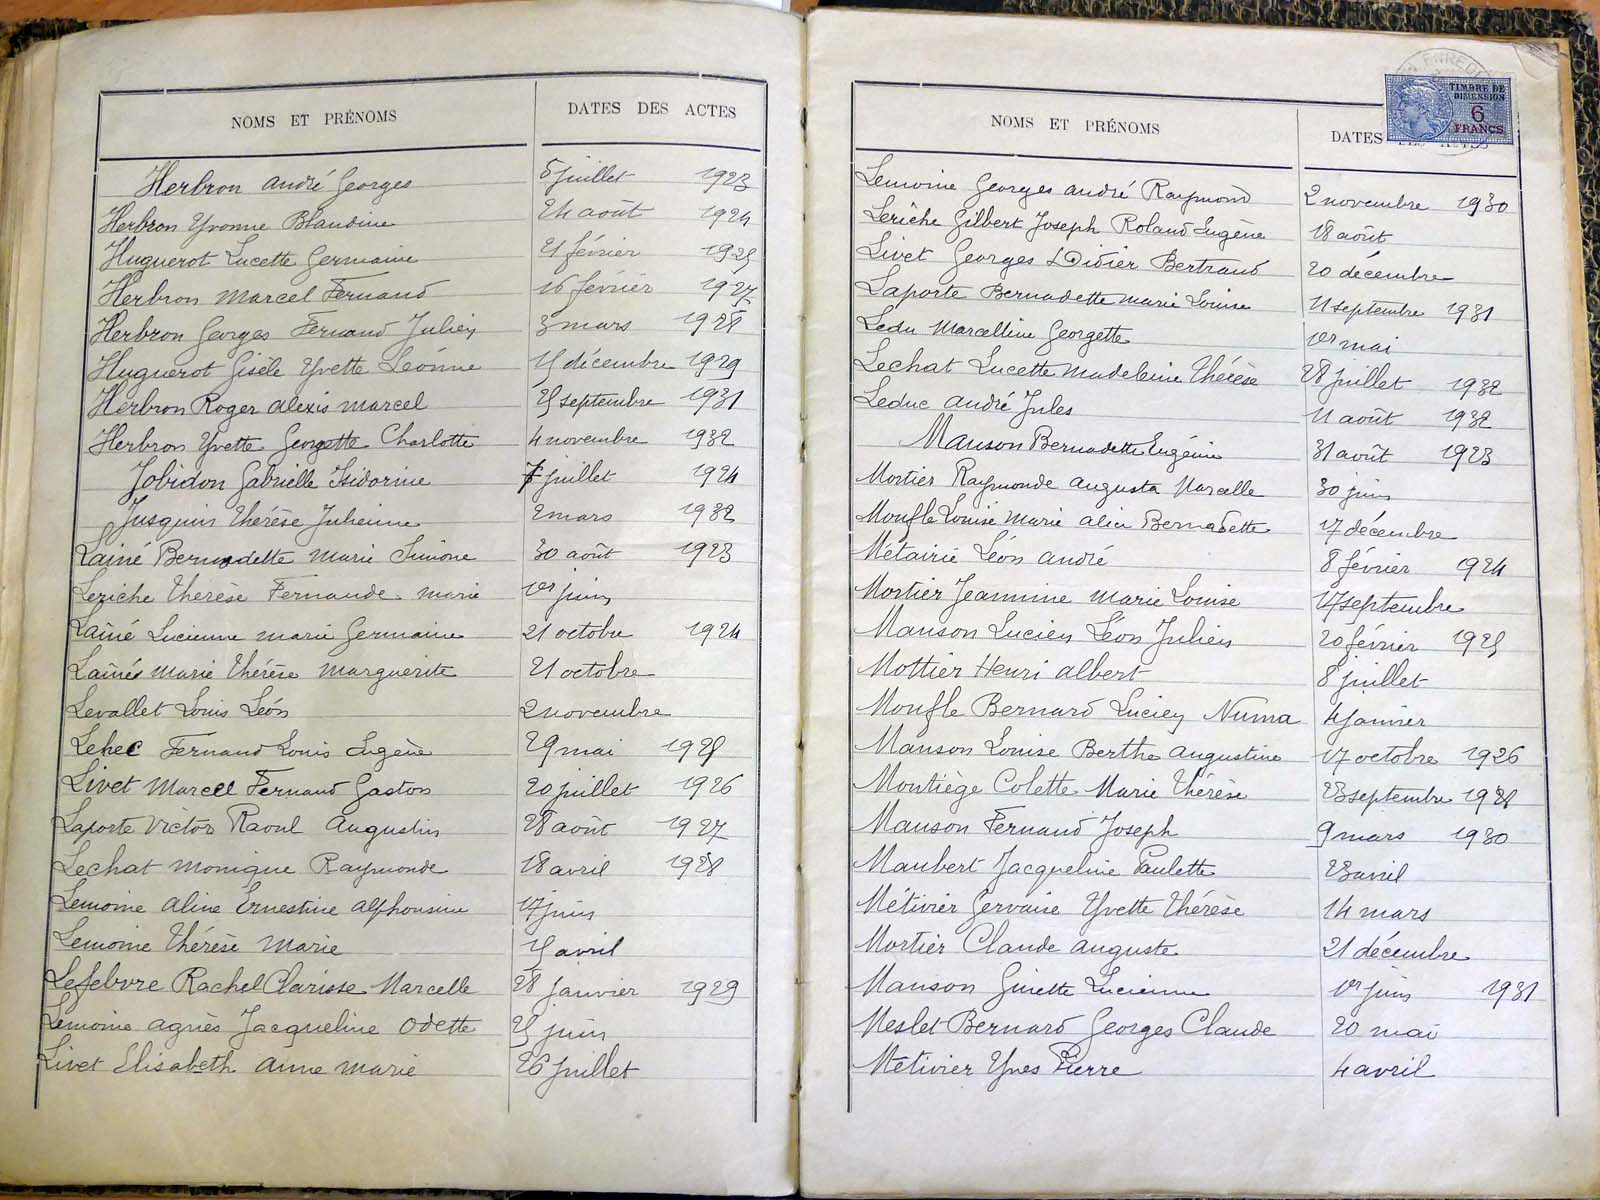 NOMS ET PRÉNOMS DATES DES ACTES
Herbron André Georges 5 juillet 1923
Herbron Yvonne Blandine 24 août 1924
Huguerot Lucette Germaine 21 février 1925
Herbron Marcel Fernand 16 février 1927
Herbron Georges Fernand Julien 3 mars 1928
Huguerot Gisèle Yvette Léonne 15 décembre 1929
Herbron Roger Alexis Marcel 25 septembre 1931
Herbron Yvette Georgette Charlotte 4 novembre 1932
Jobidon Gabrielle Isidorine 7 juillet 1924
Jusquin Thérèse Julienne 2 mars 1932
Lainé Bernadette Marie Simone 30 août 1923
Leriche Thérèse Fernande Marie 1er juin
Lainé Lucienne Marie Germaine 21 octobre 1924
Lainée Marie Thérèse Marguerite 21 octobre
Levallet Louis Léon 2 novembre
Lehec Fernand Louis Eugène 29 mai 1925
Livet Marcel Fernand Gaston 20 juillet 1926
Laporte Victor Raoul Augustin 28 août 1927
Lechat Monique Raymonde 18 avril 1928
Lemoine Aline Ernestine Alphonsine 17 juin
Lemoine Thérèse Marie 15 avril
Lefebvre Rachel Clarisse Marcelle 28 janvier 1929
Lemoine Agnès Jacqueline Odette 25 juin
Livet Elisabeth Anne Marie 26 juillet
TIMBRE DE
DIMENSION
6
FRANCS
NOMS ET PRÉNOMS DATES DES ACTES
Lemoine Georges André Raymond 2 novembre 1930
Leriche Gilbert Joseph Roland Eugène 18 août
Livet Georges Didier Bertrand 20 décembre
Laporte Bernadette Marie Louise 11 septembre 1931
Ledu Marcelline Georgette 1er mai
Lechat Lucette Madeleine Thérèse 28 juillet 1932
Leduc André Jules 11 août 1932
Manson Bernadette Eugénie 31 août 1923
Mortier Raymonde Augusta Marcelle 30 juin
Moufle Louise Marie Alice Bernadette 17 décembre
Métairie Léon André 8 février 1924
Mortier Jeannine Marie Louise 17 septembre
Manson Lucien Léon Julien 20 février 1925
Mottier Henri Albert 8 juillet
Moufle Bernard Lucien Numa 4 janvier
Manson Louise Berthe Augustine 17 octobre 1926
Montiège Colette Marie Thérèse 23 septembre 1928
Manson Fernand Joseph 9 mars 1930
Maubert Jacqueline Paulette 23 avril
Métivier Gervaise Yvette Thérèse 14 mars
Mortier Claude Auguste 21 décembre
Manson Ginette Lucienne 1er juin 1931
Meslet Bernard Georges Claude 20 mai
Métivier Yves Pierre 4 avril